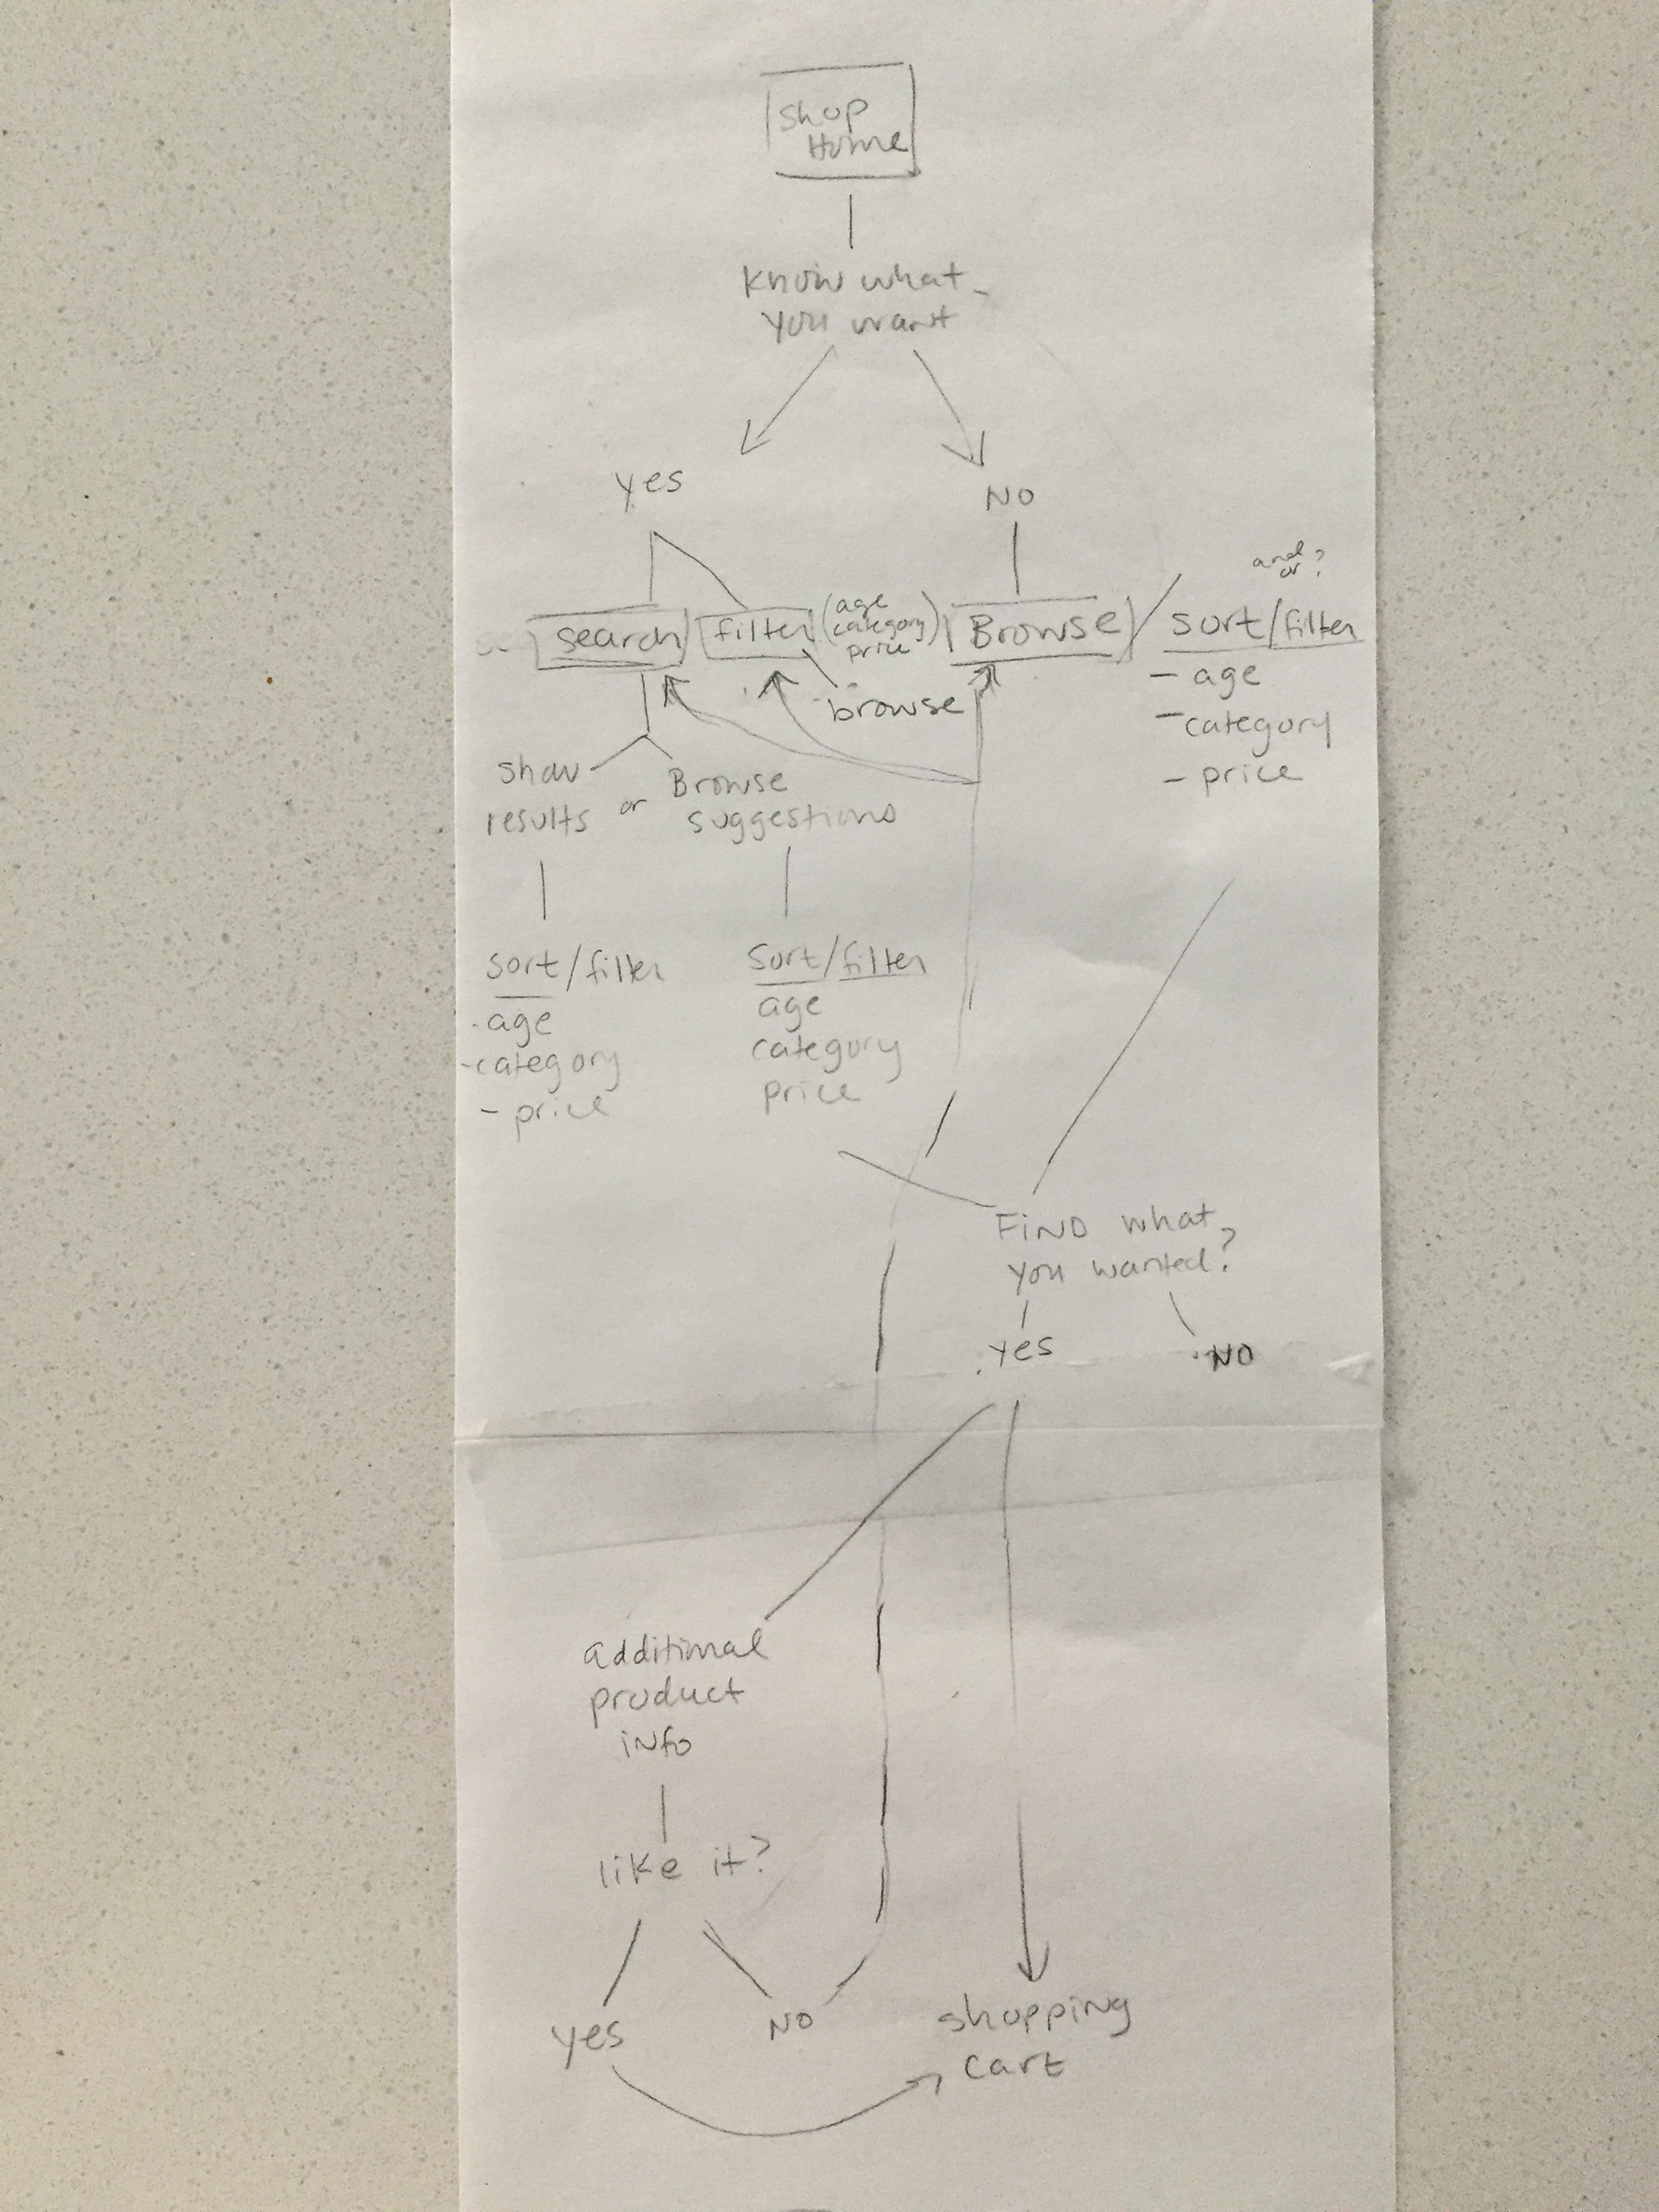 Shop
Home
Know what
you want
yes
NO
and
or ?
search
filter
(age
category
price)
Browse
/ sort/filter
browse
- age
- category
- price
show
results
or
Browse
suggestions
sort/filter
- age
- category
- price
sort/filter
age
category
price
FIND what
you wanted?
yes
NO
additional
product
info
like it?
yes
NO
shopping
cart